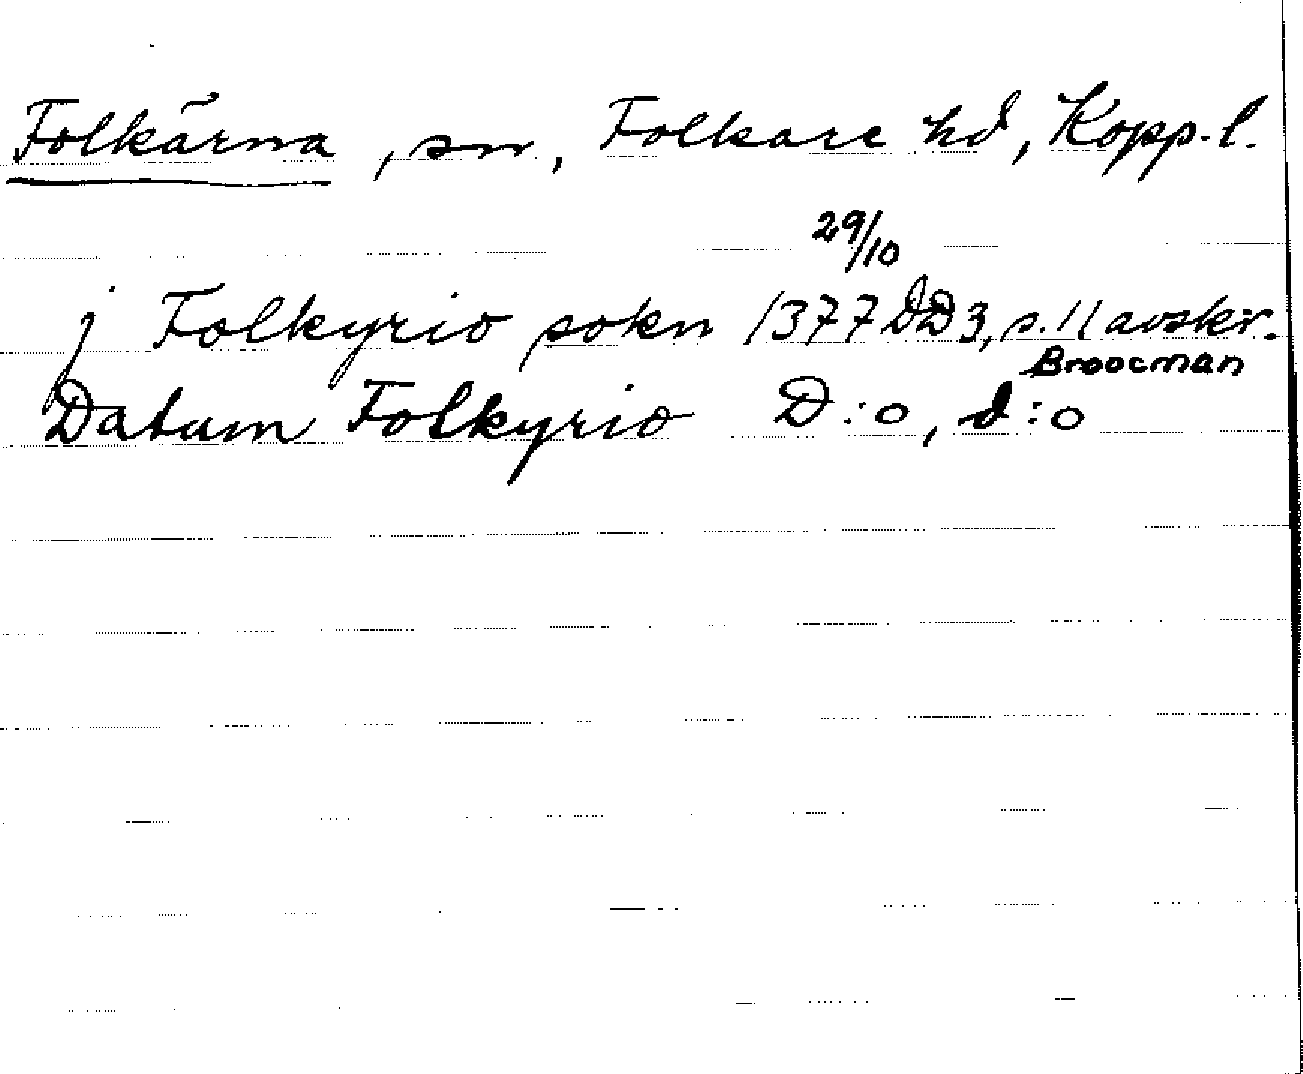 Folkärna, sn, Folkare hd, Kopp. l.
29/10
j Folkyrio sokn 1377 DD 3, s. 11 avskr.
Broocman
Datum Folkyrio D:o, d:o